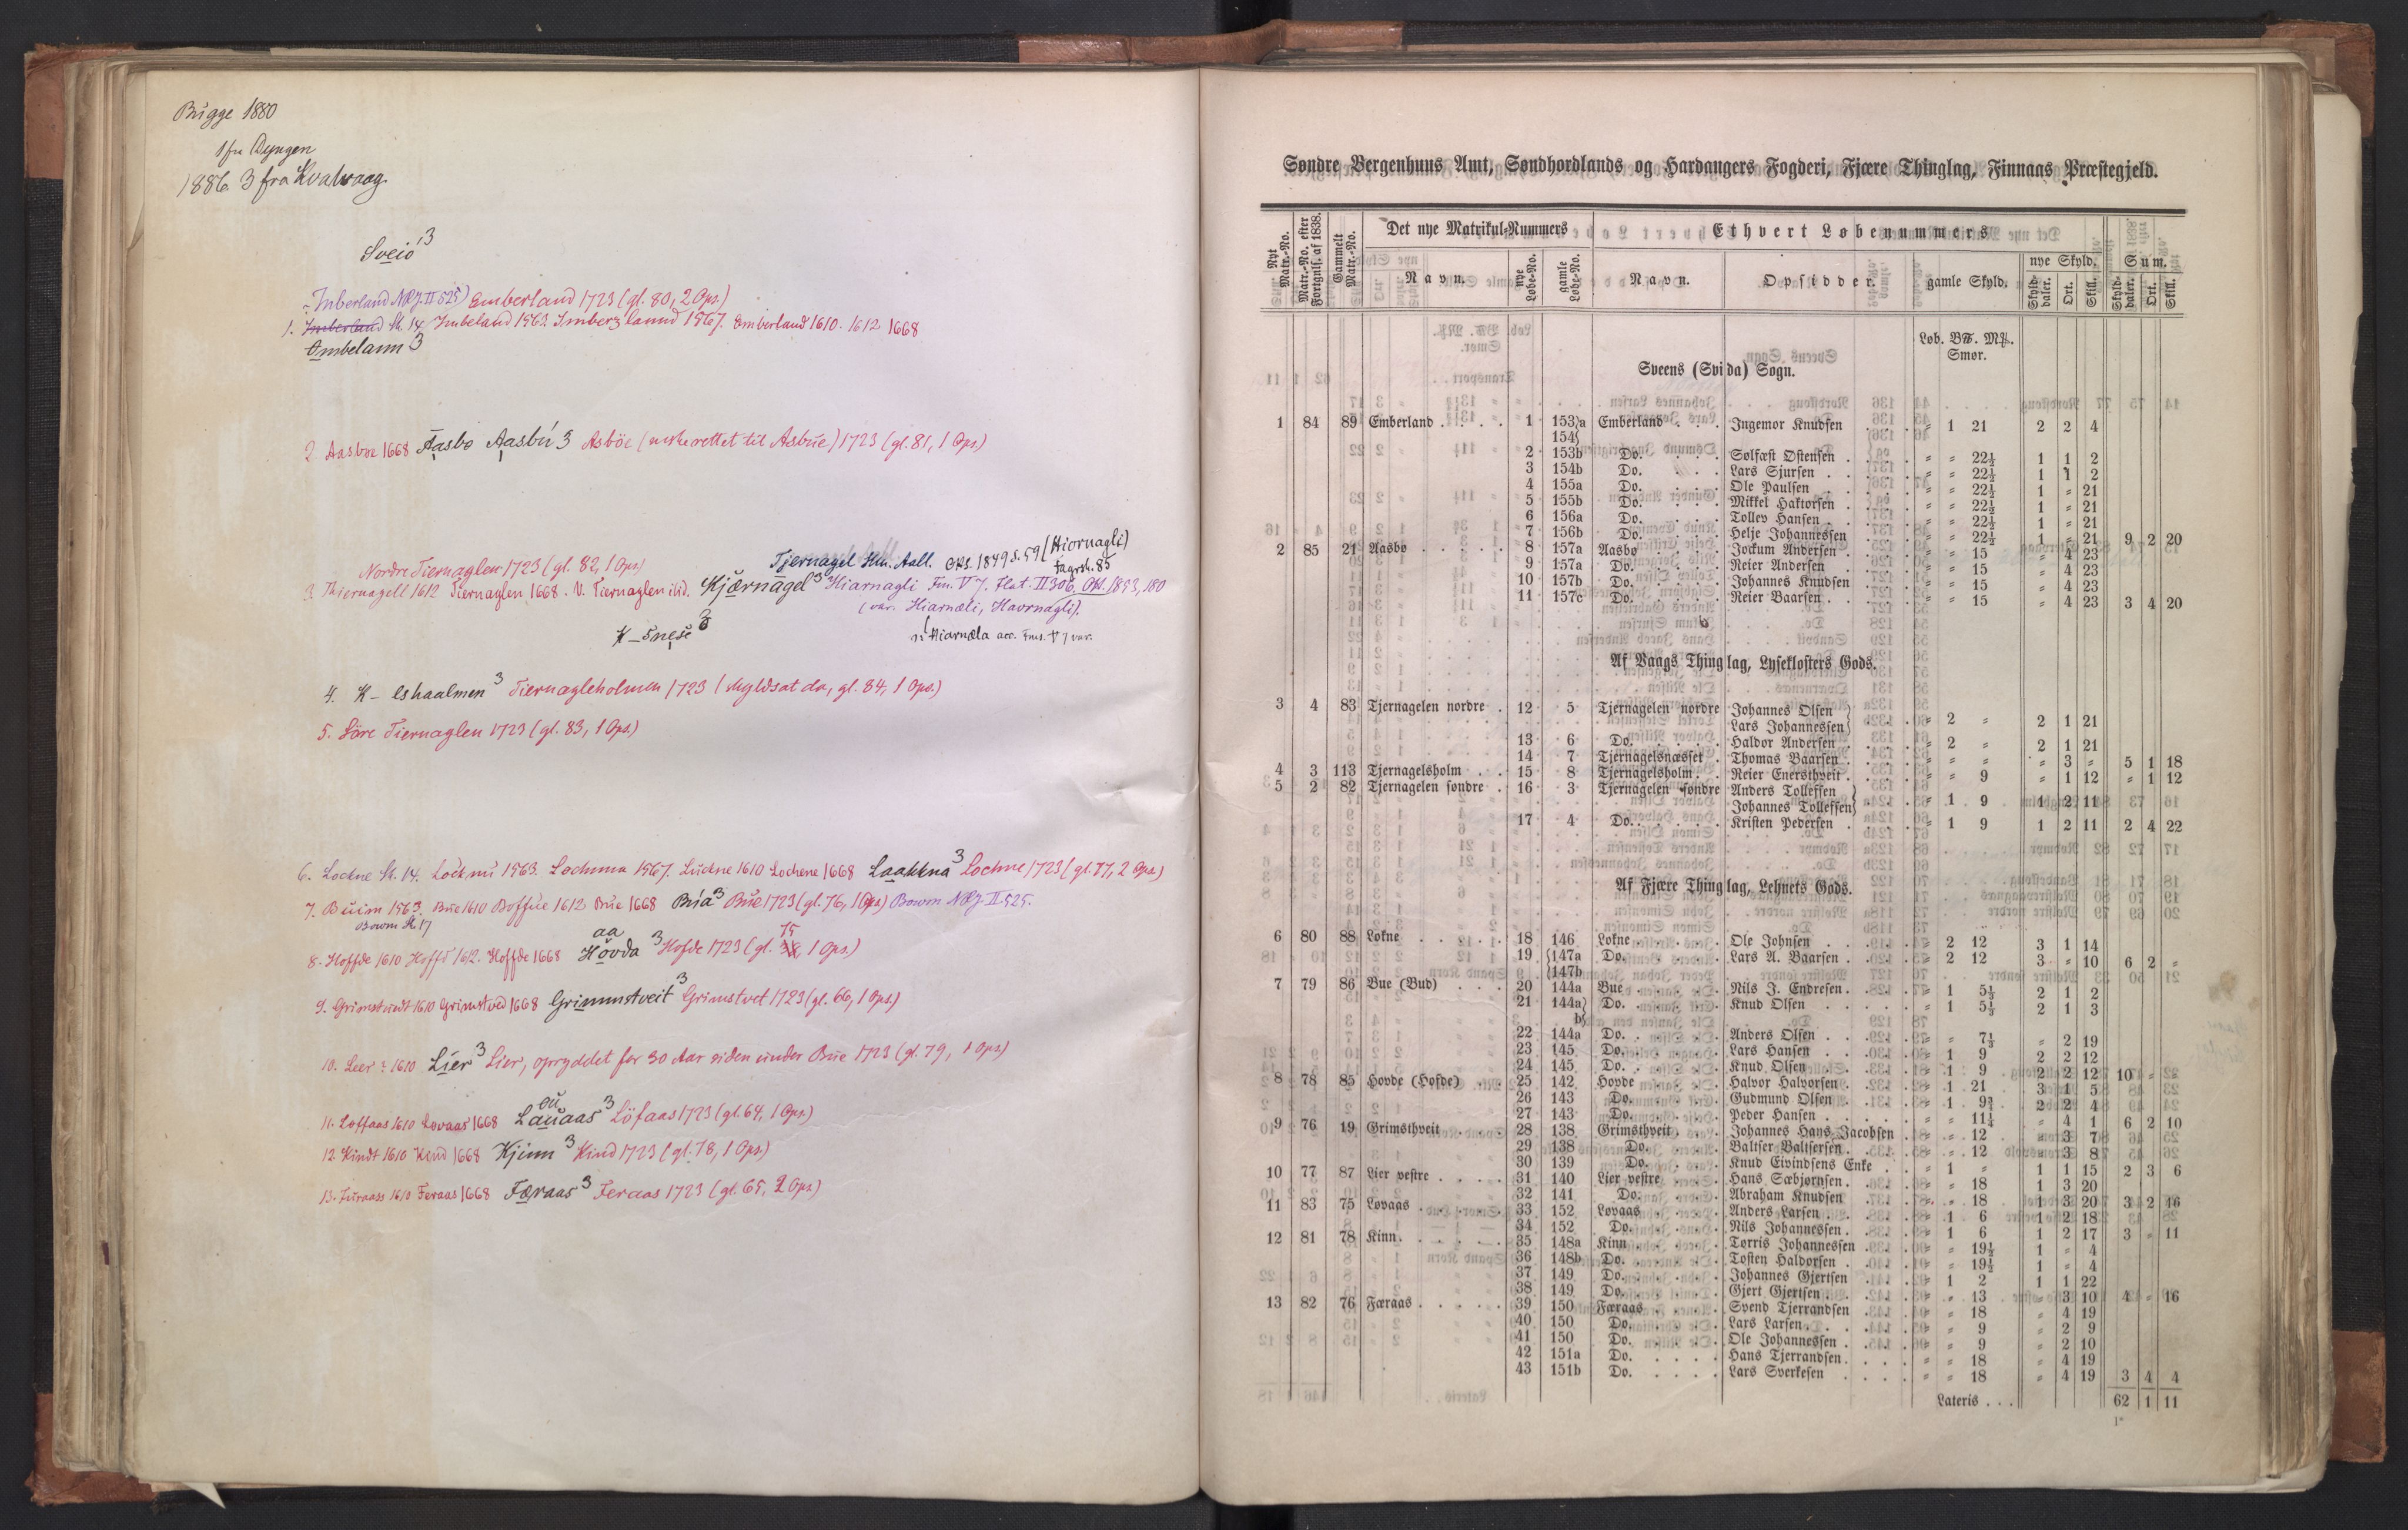 Bugge 1880
1 fra Dyngen
1886 3 fra Kvalvaag
Sveio 3
Imberland NRJ. II 525) Emberland 1723 (gl. 80, 2 Ops.)
1. Imberland St. 14, Imbeland 1563. Imberzlannd 1567. Emberland 1610. 1612 1668
Ombelann 3
2 Aasbøe 1668 Aasbø Aasbú 3 Asböe (urske rettet til Asbue) 1723 (gl. 81, 1 Ops)
Nordre Tiernaglen 1723 (gl. 82, 1 Ops)
Tjernagel Hm. Aall. Oks. 1849 S. 59 (Hiornagli)
Fagrsk. 85
3 Thiernagell 1612 Tiernaglen 1668. N. Tiernaglen ibid. Kjærnagel 3 Hiarnagli Fm. V 7. Flat. II 306. Okl. 1853, 180
(var. Hiarnæli, Havrnagli).
K–snese 3
Hiarnæla acc. Fms. V 7 var.
4. K– eshaalmen 3 Tiernagleholmen 1723 (skyldsat da, gl. 84, 1 Ops.)
5. Söre Tiernaglen 1723 (gl. 83, 1 Ops.)
6. Lockne St. 14. Locknu 1563. Lochnna 1567. Luckne 1610 Lochene 1668 Laakkna 3 Lochne 1723 (gl. 77, 2 Ops.)
7. Buim 1563. Bue 1610 Boffue 1612 Bue 1668 Búa 3 Bue 1723 (gl. 76, 1 Ops) Bowm NRJ. II 525.
Bowm St. 17
8. Hoffde 1610 Hoffd 1612. Hoffde 1668 Hovda aa 3 Hofde 1723 (gl. 75, 1 Ops.)
9. Grimstvedt 1610 Grimstved 1668 Grimmstveit 3 Grimstvet 1723 (gl. 66, 1 Ops.)
10. Leer : 1610 Líer 3 Lier, opryddet for 30 Aar siden under Bue 1723 (gl. 79, 1 Ops)
11. Loffaas 1610 Lovaas 1668 Lauaas ou 3 Löfaas 1723 (gl. 64, 1 Ops.)
12 Kindt 1610 Kend 1668 Kjinn 3 Kind 1723 (gl. 78, 1 Ops.)
13. Furaass 1610 Feraas 1668 Færaas 3 Feraas 1723 (gl. 65, 2 Ops.)
Søndre Bergenhuus Amt, Søndhordlands og Hardangers Fogderi, Fjære Thinglag, Finnaas Præstegjeld.
Nyt Matr.-No. Matr.-No. efter Fortegnls. af 1838. Gammelt Matr.-No. Det nye Matrikul-Nummers Ethvert Løbenummers
Navn. nye Løbe-No. gamle Løbe-No. Navn. Opsidder. gamle Skyld. nye Skyld. Sum.
Skyld-daler. Ort. Skill. Skyld-daler. Ort. Skill.
Løb. B℔. M℔.
Smør.
Sveens (Svida) Sogn.
1 84 89 Emberland . . . . 1 153}a Emberland . . . Ingemor Knudsen . " 1 21 2 2 4
154}
2 153b Do. . . . Sølfæst Østensen . . " " 22½ 1 1 2
3 154b Do. . . . Lars Sjursen . . " " 22½ 1 1 2
4 155a Do. . . . Ole Paulsen . . " " 22½ 1 " 21
5 155b Do. . . . Mikkel Haktorsen . . " " 22½ 1 " 21
6 156a Do. . . . Tollev Hansen . . " " 22½ 1 " 21
7 156b Do. . . . Helje Johannessen . " " 22½ 1 " 21 9 2 20
2 85 21 Aasbø . . . . . 8 157a Aasbø . . . Jockum Andersen . " " 15 " 4 23
9 157a Do. . . . Reier Andersen . . " " 15 " 4 23
10 157b Do. . . . Johannes Knudsen . " " 15 " 4 23
11 157c Do. . . . Reier Baarsen . . " " 15 " 4 23 3 4 20
Af Vaags Thinglag, Lyseklosters Gods.
3 4 83 Tjernagelen nordre . 12 5 Tjernagelen nordre Johannes Olsen }
Lars Johannessen} . " 2 " 2 1 21
13 6 Do. . . . Haldor Andersen . " 2 " 2 1 21
14 7 Tjernagelsnæsset . Thomas Baarsen . " " " " 3 " 5 1 18
4 3 113 Tjernagelsholm . . 15 8 Tjernagelsholm . . Reier Enersthveit . " " 9 " 1 12 " 1 12
5 2 82 Tjernagelen søndre . 16 3 Tjernagelen søndre Anders Tollefsen }
Johannes Tollefsen} . " 1 9 1 2 11
17 4 Do. . . . Kristen Pedersen . " 1 9 1 2 11 2 4 22
Af Fjære Thinglag, Lehnets Gods.
6 80 88 Løkne . . . . . 18 146 Løkne . . . Ole Johnsen . . " 2 12 3 1 14
19 {147a Do. . . . Lars A. Baarsen . " 2 12 3 " 10 6 2 "
{147b
7 79 86 Bue (Bud) . . . 20 144a Bue . . . Nils J. Endresen . " 1 5⅓ 2 1 2
21 144a} Do. . . . Knud Olsen . . " 1 5⅓ 2 1 3
b}
22 144a Do. . . . Anders Olsen . . " " 7⅓ " 2 19
23 145 Do. . . . Lars Hansen . . " 1 9 2 2 12
24 145 Do. . . . Knud Olsen . . " 1 9 2 2 12 10 " "
8 78 85 Hovde (Hofde) . . 25 142 Hovde . . . Halvor Halvorsen . " 1 21 3 1 5
26 143 Do. . . . Gudmund Olsen . " 1 9¾ 2 2 4
27 143 Do. . . . Peder Hansen . . " " 11¼ " 4 1 6 2 10
9 76 19 Grimsthveit . . . 28 138 Grimsthveit . . Johannes Hans Jacobsen . " " 12 " 3 7
29 138 Do. . . . Baltser Baltsersen . " " 12 " 3 8
30 139 Do. . . . Knud Eivindsens Enke . " 1 " 1 1 15 2 3 6
10 77 87 Lier vestre . . . . 31 140 Lier vestre . . Hans Sæbjørnsen . " " 18 1 3 20
32 141 Do. . . . Abraham Knudsen . " " 18 1 3 20 3 2 16
11 83 75 Løvaas . . . . . 33 152 Løvaas . . . Anders Larsen . . " 1 6 1 2 18
34 152 Do. . . . Nils Johannessen . " 1 6 1 2 17 3 " 11
12 81 78 Kinn . . . . . 35 148a Kinn . . . Tørris Johannessen . " " 19½ 1 " 4
36 148b Do. . . . Tosten Haldorsen . " " 19½ 1 " 4
37 149 Do. . . . Johannes Gjertsen . " 1 2 1 1 22
38 149 Do. . . . Gjert Gjertsen . . " " 13 " 3 10 4 " 16
13 82 76 Færaas . . . . . 39 150 Færaas . . . Svend Tjerrandsen . " " 18 " 4 19
40 150 Do. . . . Lars Larsen . . " " 9 " 2 9
41 150 Do. . . . Ole Johannessen . " " 9 " 2 10
42 151a Do. . . . Hans Tjerrandsen . " " 18 " 4 19
43 151b Do. . . . Lars Sverkesen . . " " 18 " 4 19 3 4 4
Lateris . . . 62 1 11
1*